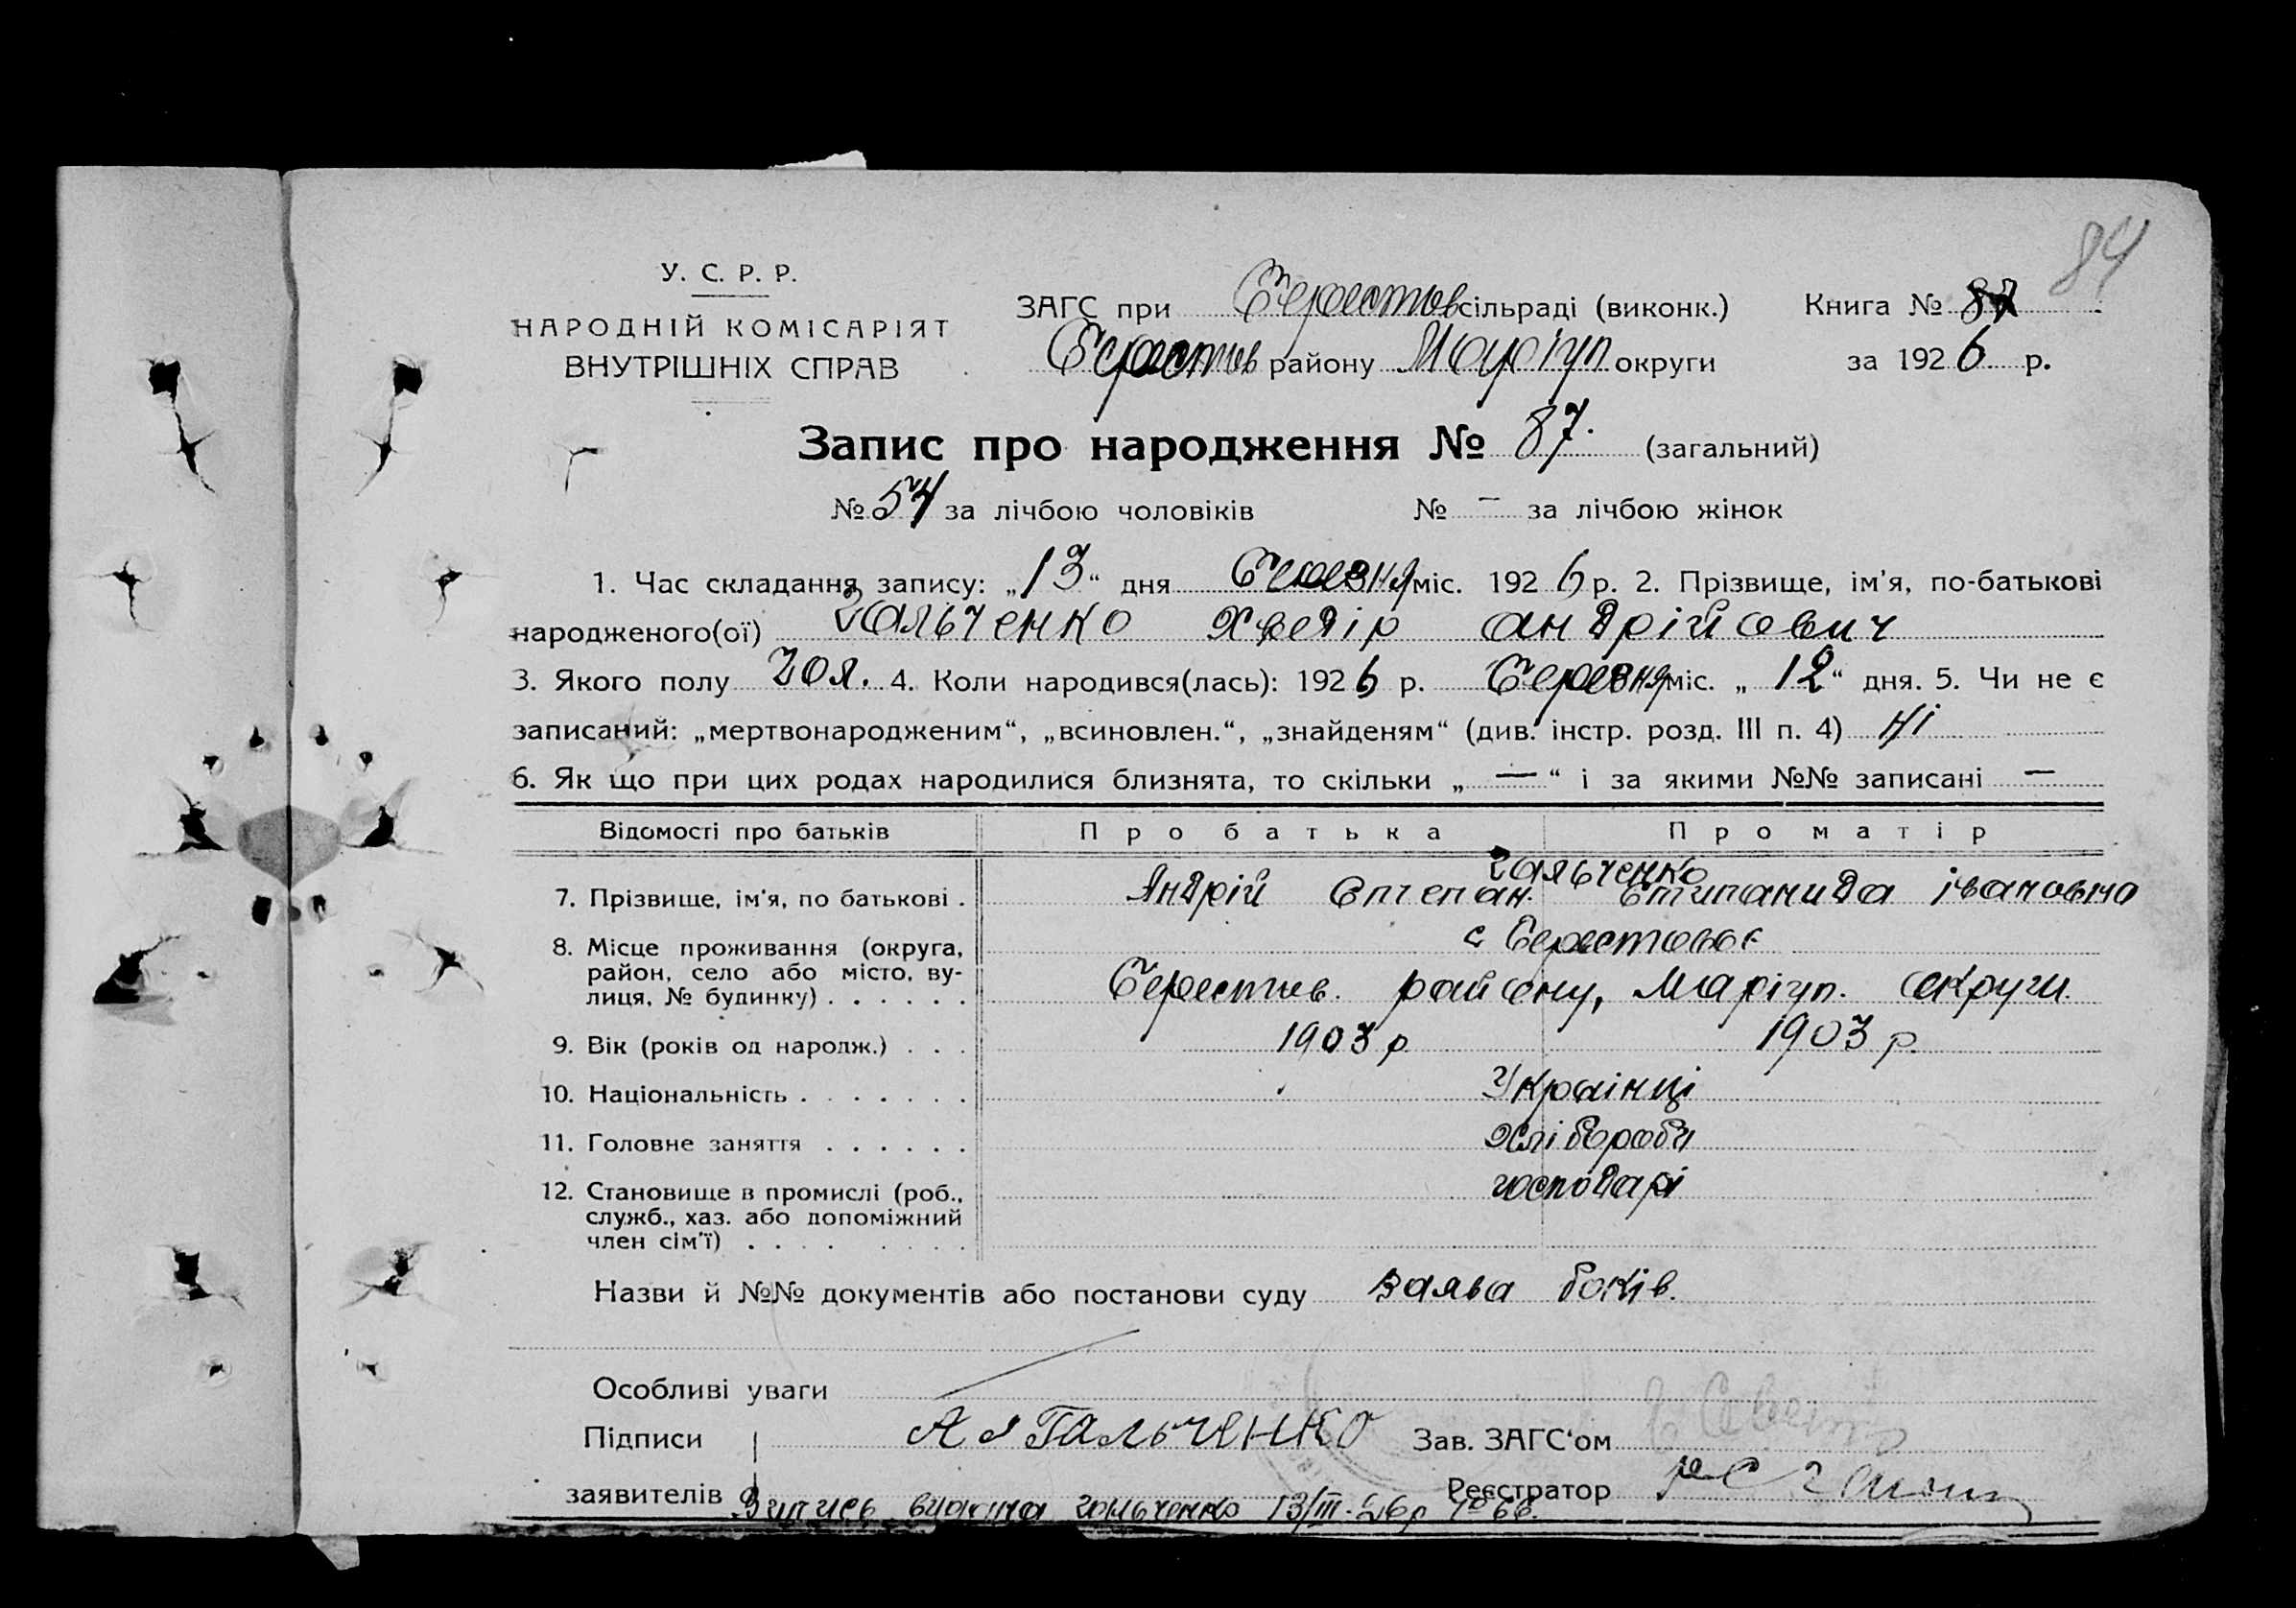 84
У. С. Р. Р.
НАРОДНІЙ КОМІСАРІЯТ
ВНУТРІШНІХ СПРАВ
ЗАГС при Берестов сільраді (виконк.)
Берестов району Маріуп округи
Книга №
за 1926 р.
Запис про народження № 87. (загальний)
№ 54 за лічбою чоловіків № — за лічбою жінок
1. Час складання запису: „13“ дня Березня міс. 1926 р. 2. Прізвище, ім'я, по-батькові
народженого(ої) Гальченко Хведір андрійович
3. Якого полу чол. 4. Коли народився(лась): 1926 р. Березня міс. „12“ дня. 5. Чи не є
записаний: „мертвонародженим“, „всиновлен.“, „знайденям“ (див. інстр. розд. III п. 4) ні
6. Як що при цих родах народилися близнята, то скільки „—“ і за якими №№ записані —
Відомості про батьків Про батька Про матір
Гальченко
7. Прізвище, ім'я, по батькові . Андрій Степан. Стипанида івановна
8. Місце проживання (округа, район, село або місто, вулиця, № будинку) . . . . . .
с Берестовое
Берестов. району, Маріуп. округи
9. Вік (років од народж.) . . . 1903 р 1903 р.
10. Національність . . . . . . . Українці
11. Головне заняття . . . . . . хлібороби
12. Становище в промислі (роб., служб., хаз. або допоміжний член сім'ї) . . . . господарі
Назви й №№ документів або постанови суду Заява боків.
Особливі уваги
Підписи А Гальченко Зав. ЗАГС'ом
заявителів Реєстратор
гальченко 13/III-26р № 66.